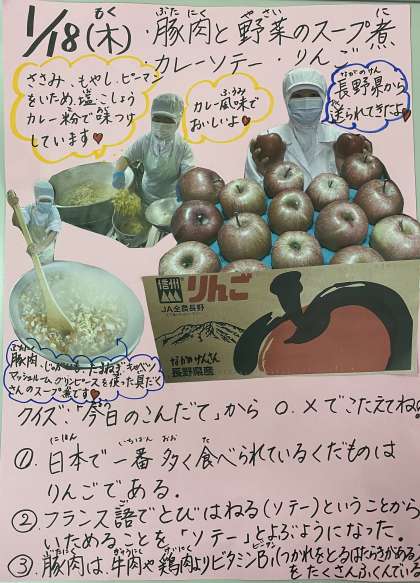 1/18(木)
・豚肉と野菜のスープ煮
・カレーソテー ・りんご
もく
ぶたにく
やさい
に
ささみ・もやし・ピーマン
をいため、塩、こしょう
カレー粉で味つけ
しています♥
ふうみ
カレー風味で
おいしいよ♥
ながのけん
長野県から
送られてきたよ♥
信州
りんご
JA全農長野
ながのけんさん
長野県産
豚肉、じゃがいも、たまねぎ、キャベツ
マッシュルーム、グリンピースを使った具だく
さんのスープ煮です♥
クイズ:「今日のこんだて」から ○、×でこたえてね。
にほん いちばん おお た
①.日本で一番多く食べられているくだものは
りんごである。
②フランス語でとびはねる(ソテー)ということから
いためることを「ソテー」とよぶようになった。
ぶたにく ぎゅうにく とりにく
③豚肉は、牛肉や鶏肉よりビタミンB₁(つかれをとるはたらきがある)
をたくさんふくんでいる